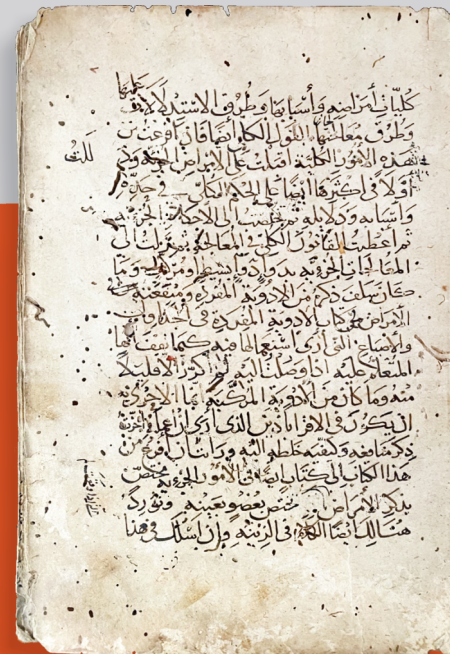 كليات أمراضه وأسبابها وطرق الاستدلالات عليها
وطرق معالجاتها بالقول الكلي أيضا فإذا فرغت من
هذه الأمور الكلية أقبلت على الأمراض الجزئية ودللت
أولا في أكثرها أيضا على الحكم الكلي في حده
وأسبابه ودلائله ثم تخلصت إلى الأحكام الجزئية
ثم أعطيت القانون الكلي في المعالجة ثم نزلت إلى
المعالجات الجزئية بدواء دواء بسيط أو مركب وما
كان سلف ذكره من الأدوية المفردة ومنفعته في
الأمراض في كتاب الأدوية المفردة في الجداول
والأصباغ التي أرى استعمالها فيه كما تقف أيها
المتعلم عليه إذا وصلت إليه لم أكرر إلا قليلا
منه وما كان من الأدوية المركبة إنما الأحرى به
أن يكون في الأقراباذين الذي أرى أن أعمله أخرت
ذكر منافعه وكيفية خلطه إليه ورأيت أن أفرغ من
هذا الكتاب إلى كتاب أيضا في الأمور الجزئية مختص
بذكر الأمراض تختص بعضو بعينه ونورد
هنالك أيضا الكلام في الزينة وأن أسلك في هذا